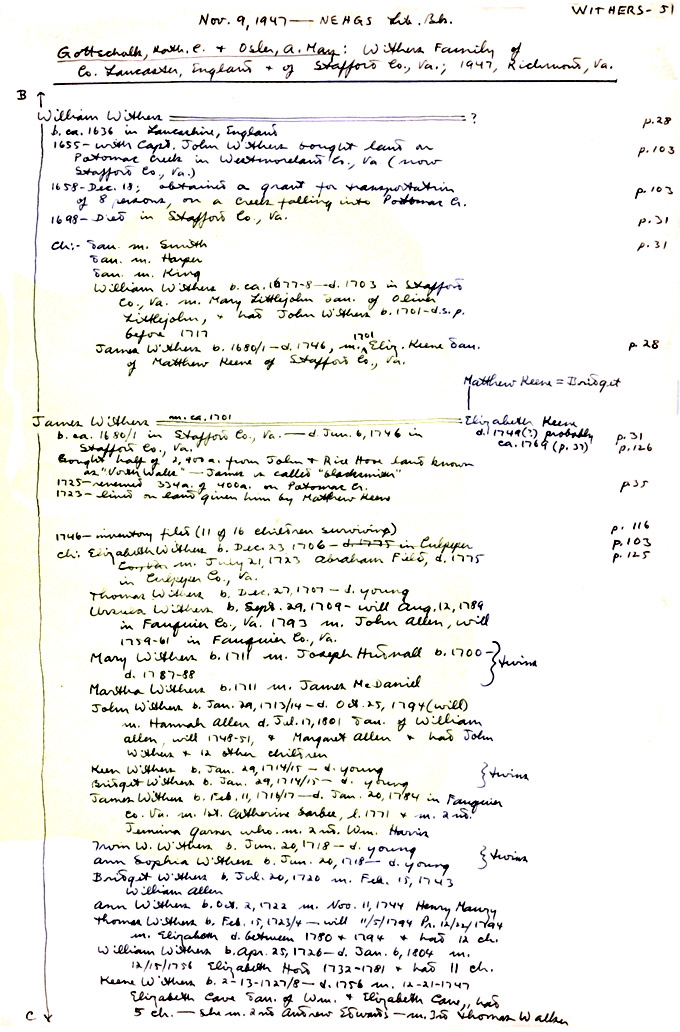 WITHERS-51
Nov. 9, 1947 — NEHGS Lib. Bk.
Gottschalk, Kath. C. + Osler, A. May: Withers Family of
Co. Lancaster, England + of Stafford Co., Va.; 1947, Richmond, Va.
B
William Withers ? p.28
b. ca. 1636 in Lancashire, England
1655- with Capt. John Withers bought land on p.103
Potomac Creek in Westmoreland Co., Va (now
Stafford Co., Va.)
1658-Dec. 18; obtained a grant for transportation p.103
of 8 persons, on a creek falling into Potomac Cr.
1698- Died in Stafford Co., Va. p.31
Ch:- Dau. m. Smith p.31
Dau. m. Harper
Dau. m. King
William Withers b. ca. 1677-8—d. 1703 in Stafford
Co., Va. m. Mary Littlejohn dau. of Oliver
Littlejohn, + had John Withers b. 1701-d.s.p.
before 1717
James Withers b. 1680/1—d. 1746, m. 1701 Eliz. Keene dau. p.28
of Matthew Keene of Stafford Co., Va.
Matthew Keene = Bridget
James Withers m. ca. 1701 Elizabeth Keene
b. ca. 1680/1 in Stafford Co., Va. — d. Jun. 6, 1746 in d. 1749(?) probably p.31
Stafford Co., Va. ca. 1769 (p.37) p.126
Bought half of 2,400a. from John + Rice Hooe land known
as "Vorth Walke" — James is called "blacksmith"
1725- renewed 334a. of 400a. on Potomac Cr. p35
1723- lived on land given him by Matthew Keene
1746- inventory filed (11 of 16 children surviving) p. 116
Ch: Elizabeth Withers b. Dec. 23, 1706 - d. 1775 in Culpeper p.103
Co., Va. m. July 21, 1723 Abraham Field, d. 1775 p.125
in Culpeper Co., Va.
Thomas Withers b. Dec. 27, 1707 — d. young
Ursula Withers b. Sept. 29, 1709- will Aug. 12, 1789
in Fauquier Co., Va. 1793 m. John Allen, will
1759-61 in Fauquier Co., Va.
Mary Withers b. 1711 m. Joseph Hudnall b. 1700-
d. 1787-88 } twins
Martha Withers b. 1711 m. James McDaniel
John Withers b. Jan. 29, 1713/14 — d. Oct. 25, 1794 (will)
m. Hannah Allen d. Jul. 17, 1801 dau. of William
Allen, will 1748-51, + Margaret Allen + had John
Withers + 12 other children
Keen Withers b. Jan. 29, 1714/15 — d. young } twins
Bridget Withers b. Jan. 29, 1714/15 — d. young
James Withers b. Feb. 11, 1716/17 — d. Jan. 20, 1784 in Fauquier
Co. Va. m. 1st. Catherine Barbee, l. 1771 + m. 2nd.
Jemima Garner who m. 2nd. Wm. Harris
W. Withers b. Jun. 20, 1718 — d. young } twins
Ann Sophia Withers b. Jun. 20, 1718 — d. young
Bridget Withers b. Jul. 20, 1720 m. Feb. 15, 1743
William Allen
Ann Withers b. Oct. 2, 1722 m. Nov. 11, 1744 Henry Maury
Thomas Withers b. Feb. 15, 1723/4 — will 11/5/1794 Pr. 12/22/1794
m. Elizabeth d. between 1780 + 1794 + had 12 ch.
William Withers b. Apr. 25, 1726 — d. Jan. 6, 1804 m.
12/15/1756 Elizabeth Hord 1732-1781 + had 11 ch.
Keene Withers b. 2-13-1727/8 — d. 1756 m. 12-21-1747
Elizabeth Cave dau. of Wm. + Elizabeth Cave,, had
5 ch. — she m. 2nd Andrew Edwards — m. 3rd Thomas Walker
C